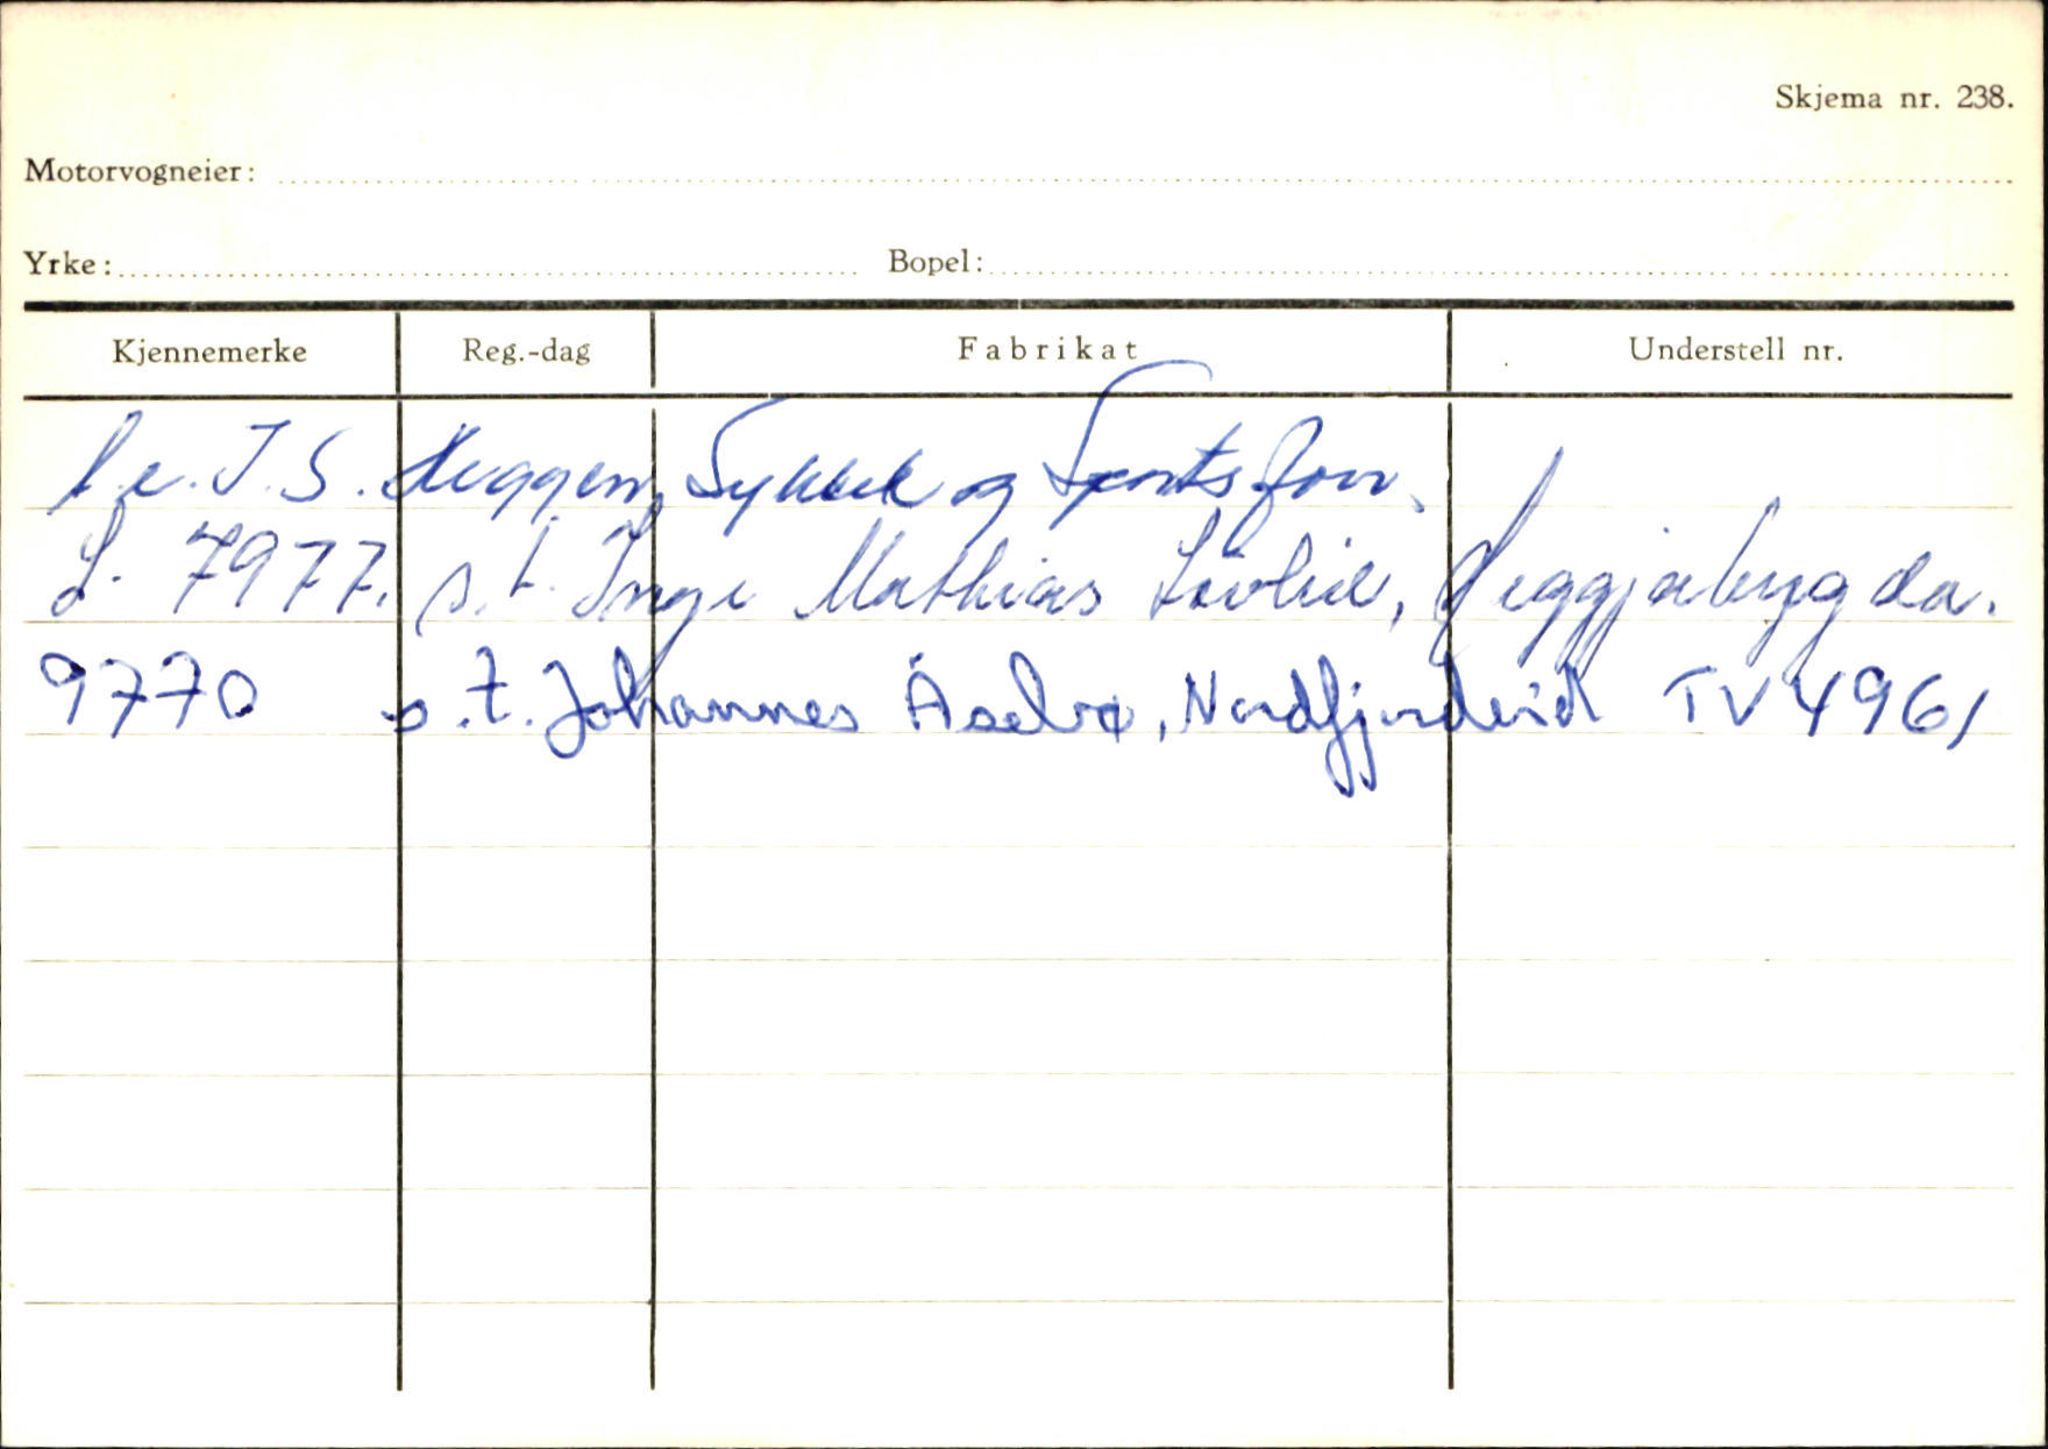 Skjema nr. 238.
Motorvogneier:
Yrke: Bopel:
Kjennemerke Reg.-dag Fabrikat Understell nr.
I. S. Heggen, Sykkel og Sportsforr.
7977. s.t. Inge Mathias Løvlid, Heggjabygda.
9770 s.t. Johannes Åsebø, Nordfjordeid TV 4961